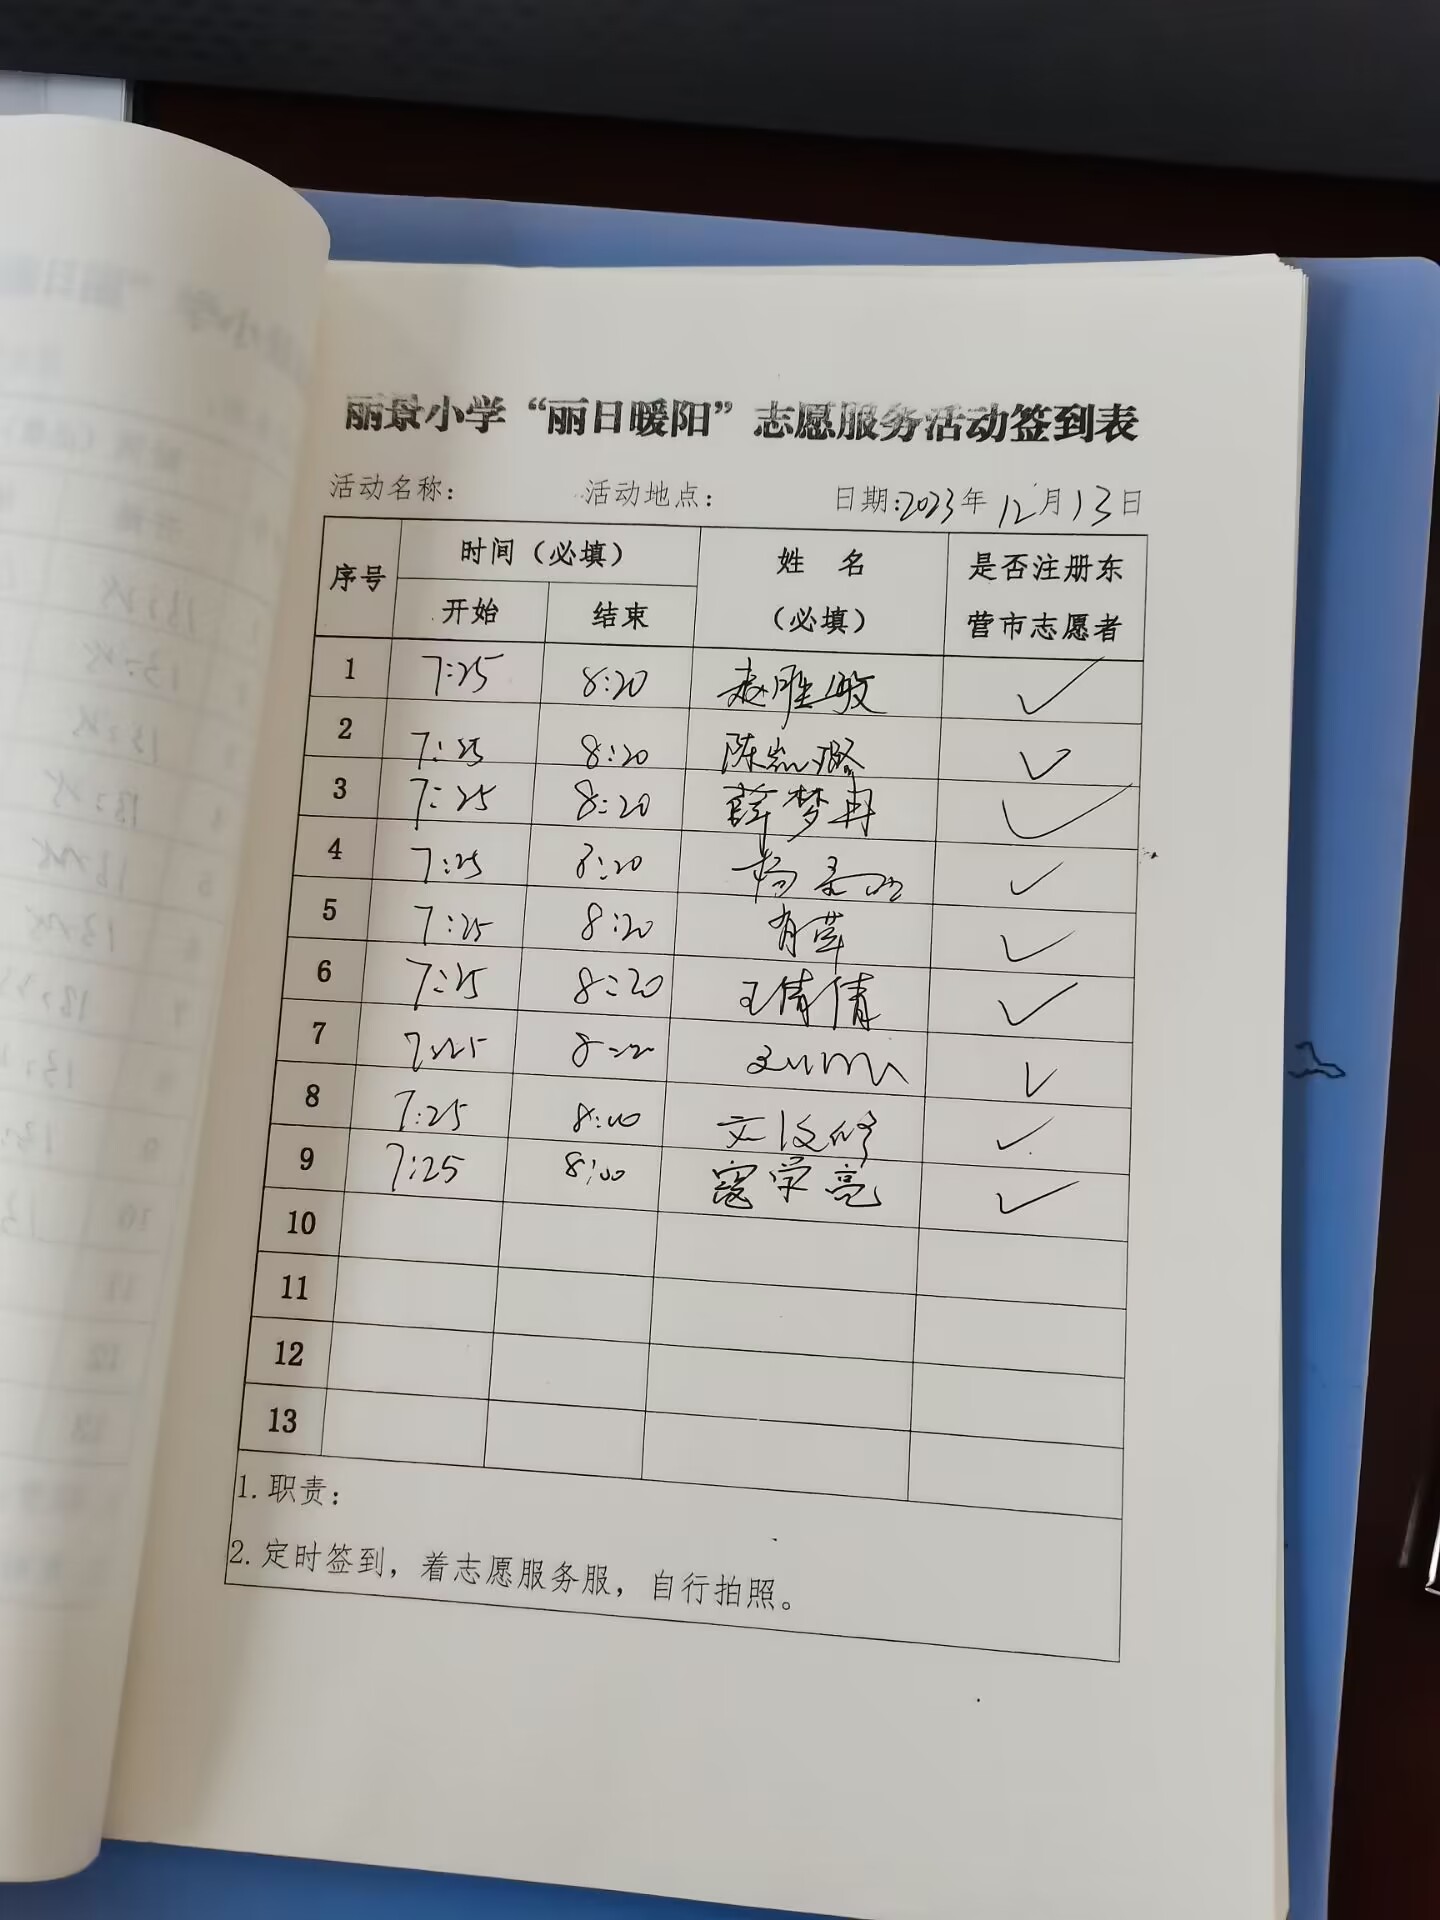 丽景小学“丽日暖阳”志愿服务活动签到表
活动名称: 活动地点: 日期:2023年12月13日
序号 时间（必填） 姓 名（必填） 是否注册东营市志愿者
开始 结束
1 7:25 8:20 赵雅敏 ✓
2 7:25 8:20 陈凯璐 ✓
3 7:25 8:20 薛梦冉 ✓
4 7:25 8:20 杨 ✓
5 7:25 8:20 ✓
6 7:25 8:20 王倩倩 ✓
7 7:25 8:20 ✓
8 7:25 8:00 ✓
9 7:25 8:00 寇学亮 ✓
10
11
12
13
1.职责:
2.定时签到，着志愿服务服，自行拍照。